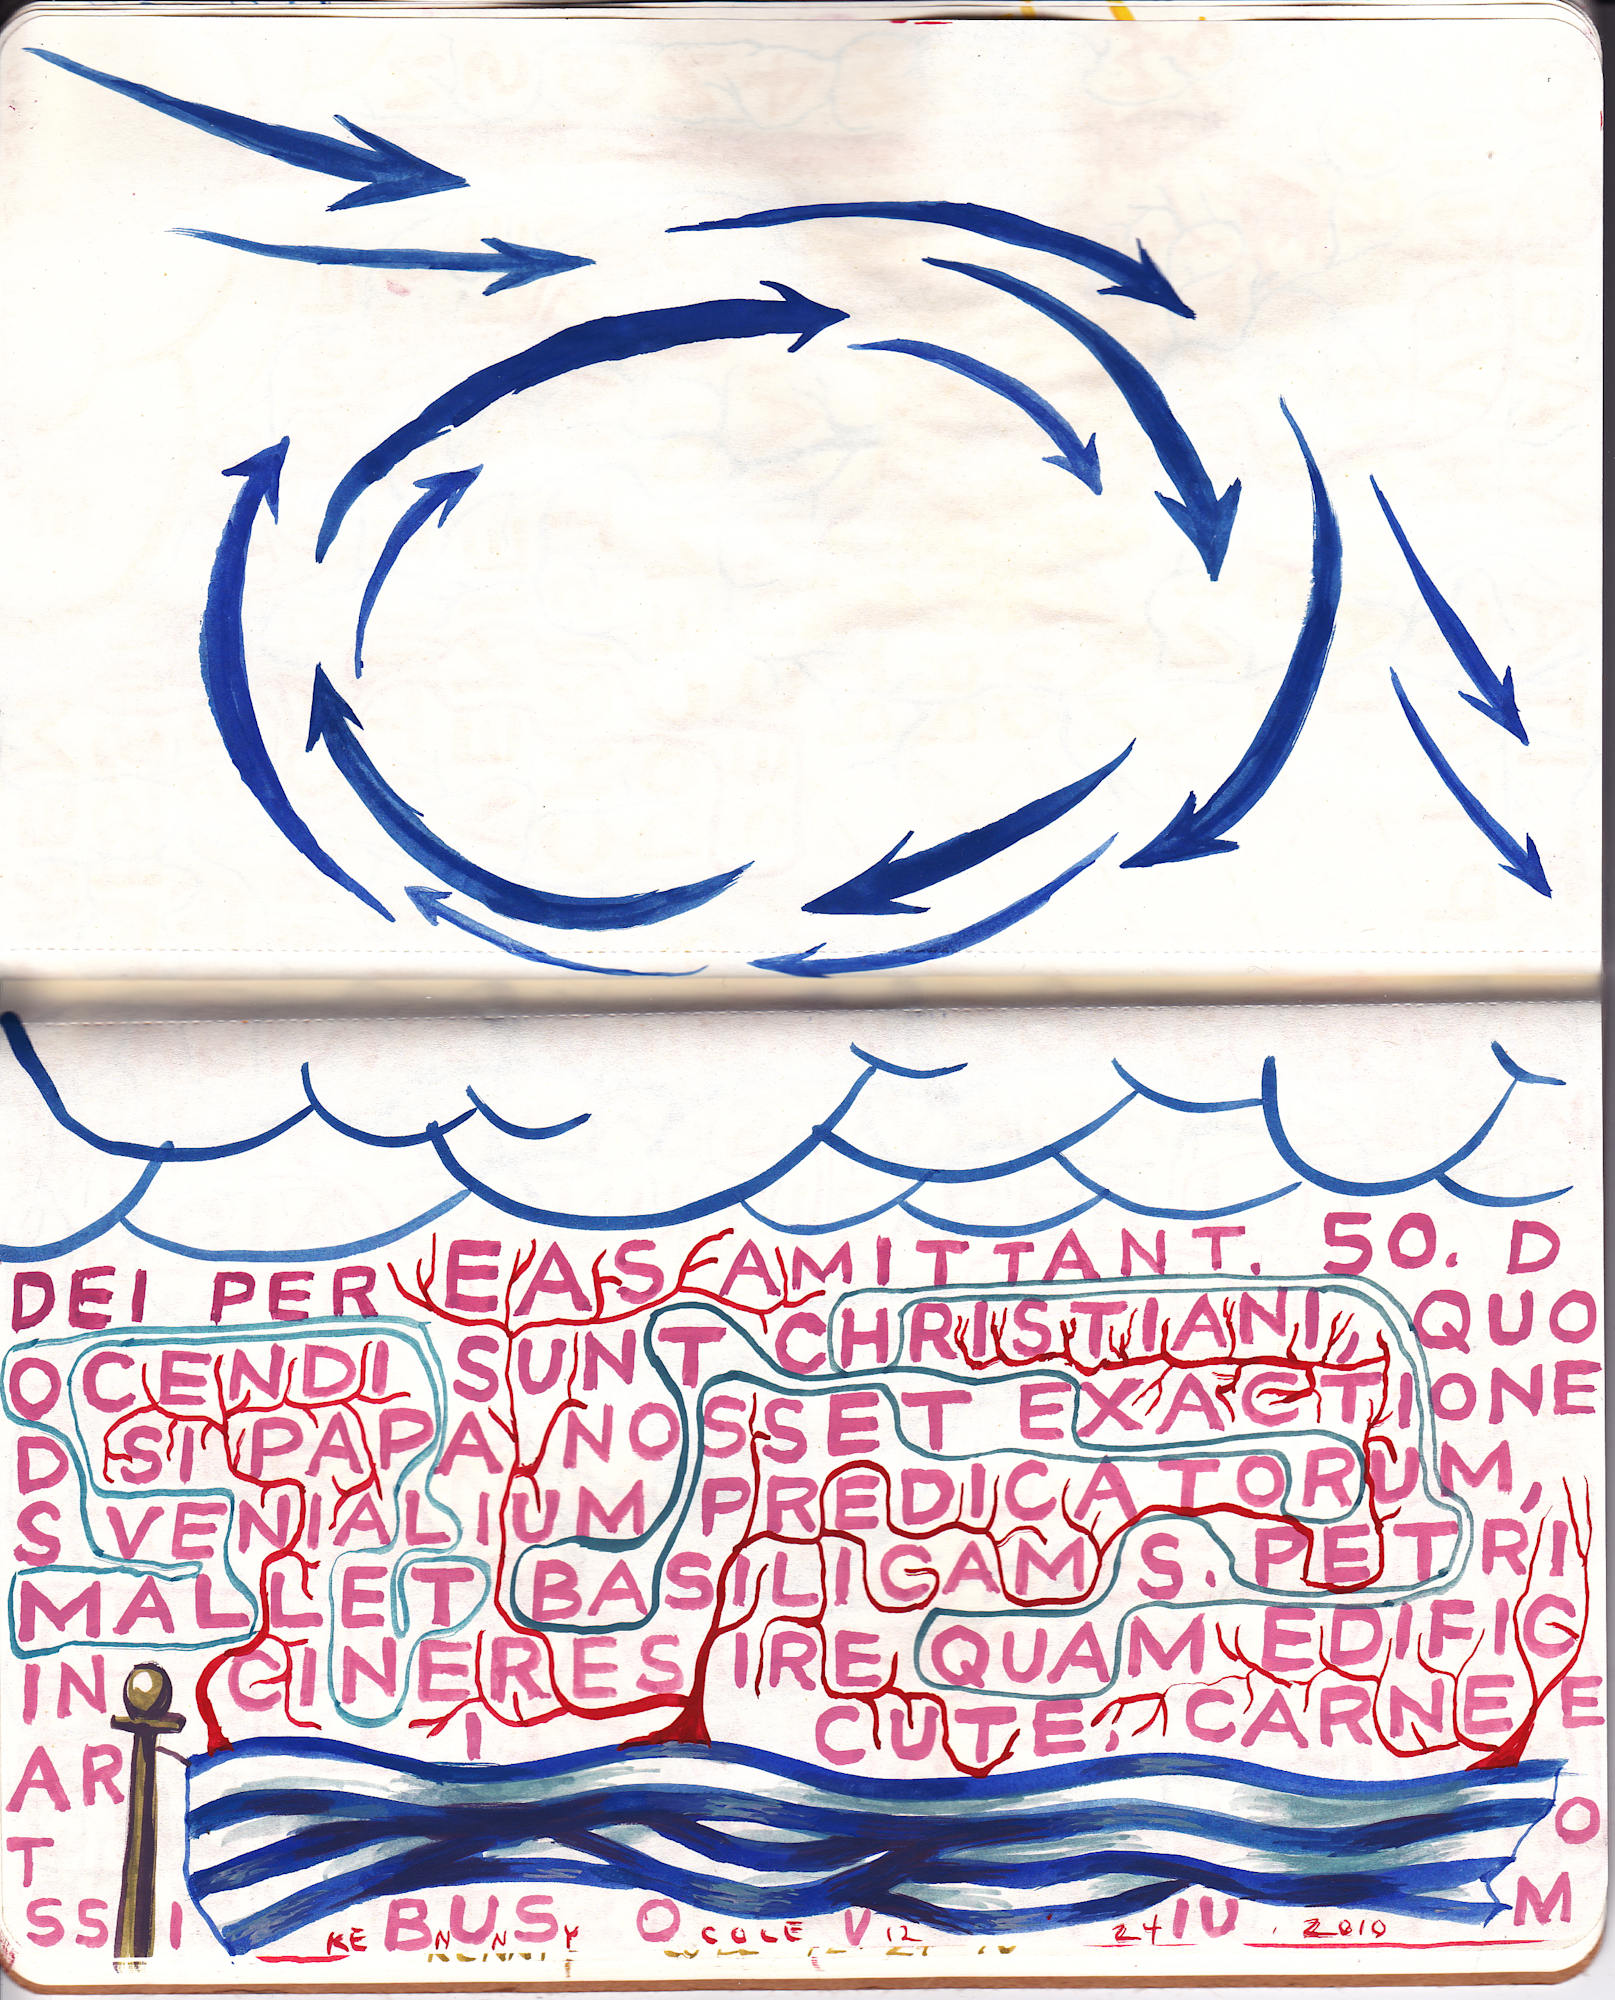 DEI PER EAS AMITTANT. 50. D
OCENDI SUNT CHRISTIANI, QUO
D SI PAPA NOSSET EXACTIONE
S VENIALIUM PREDICATORUM,
MALLET BASILIGAM S. PETRI
IN CINERES IRE QUAM EDIFIG
ARI CUTE, CARNE E
T O
SSIBUS O VIU M
KENNNY COLE 12 24 . 2010